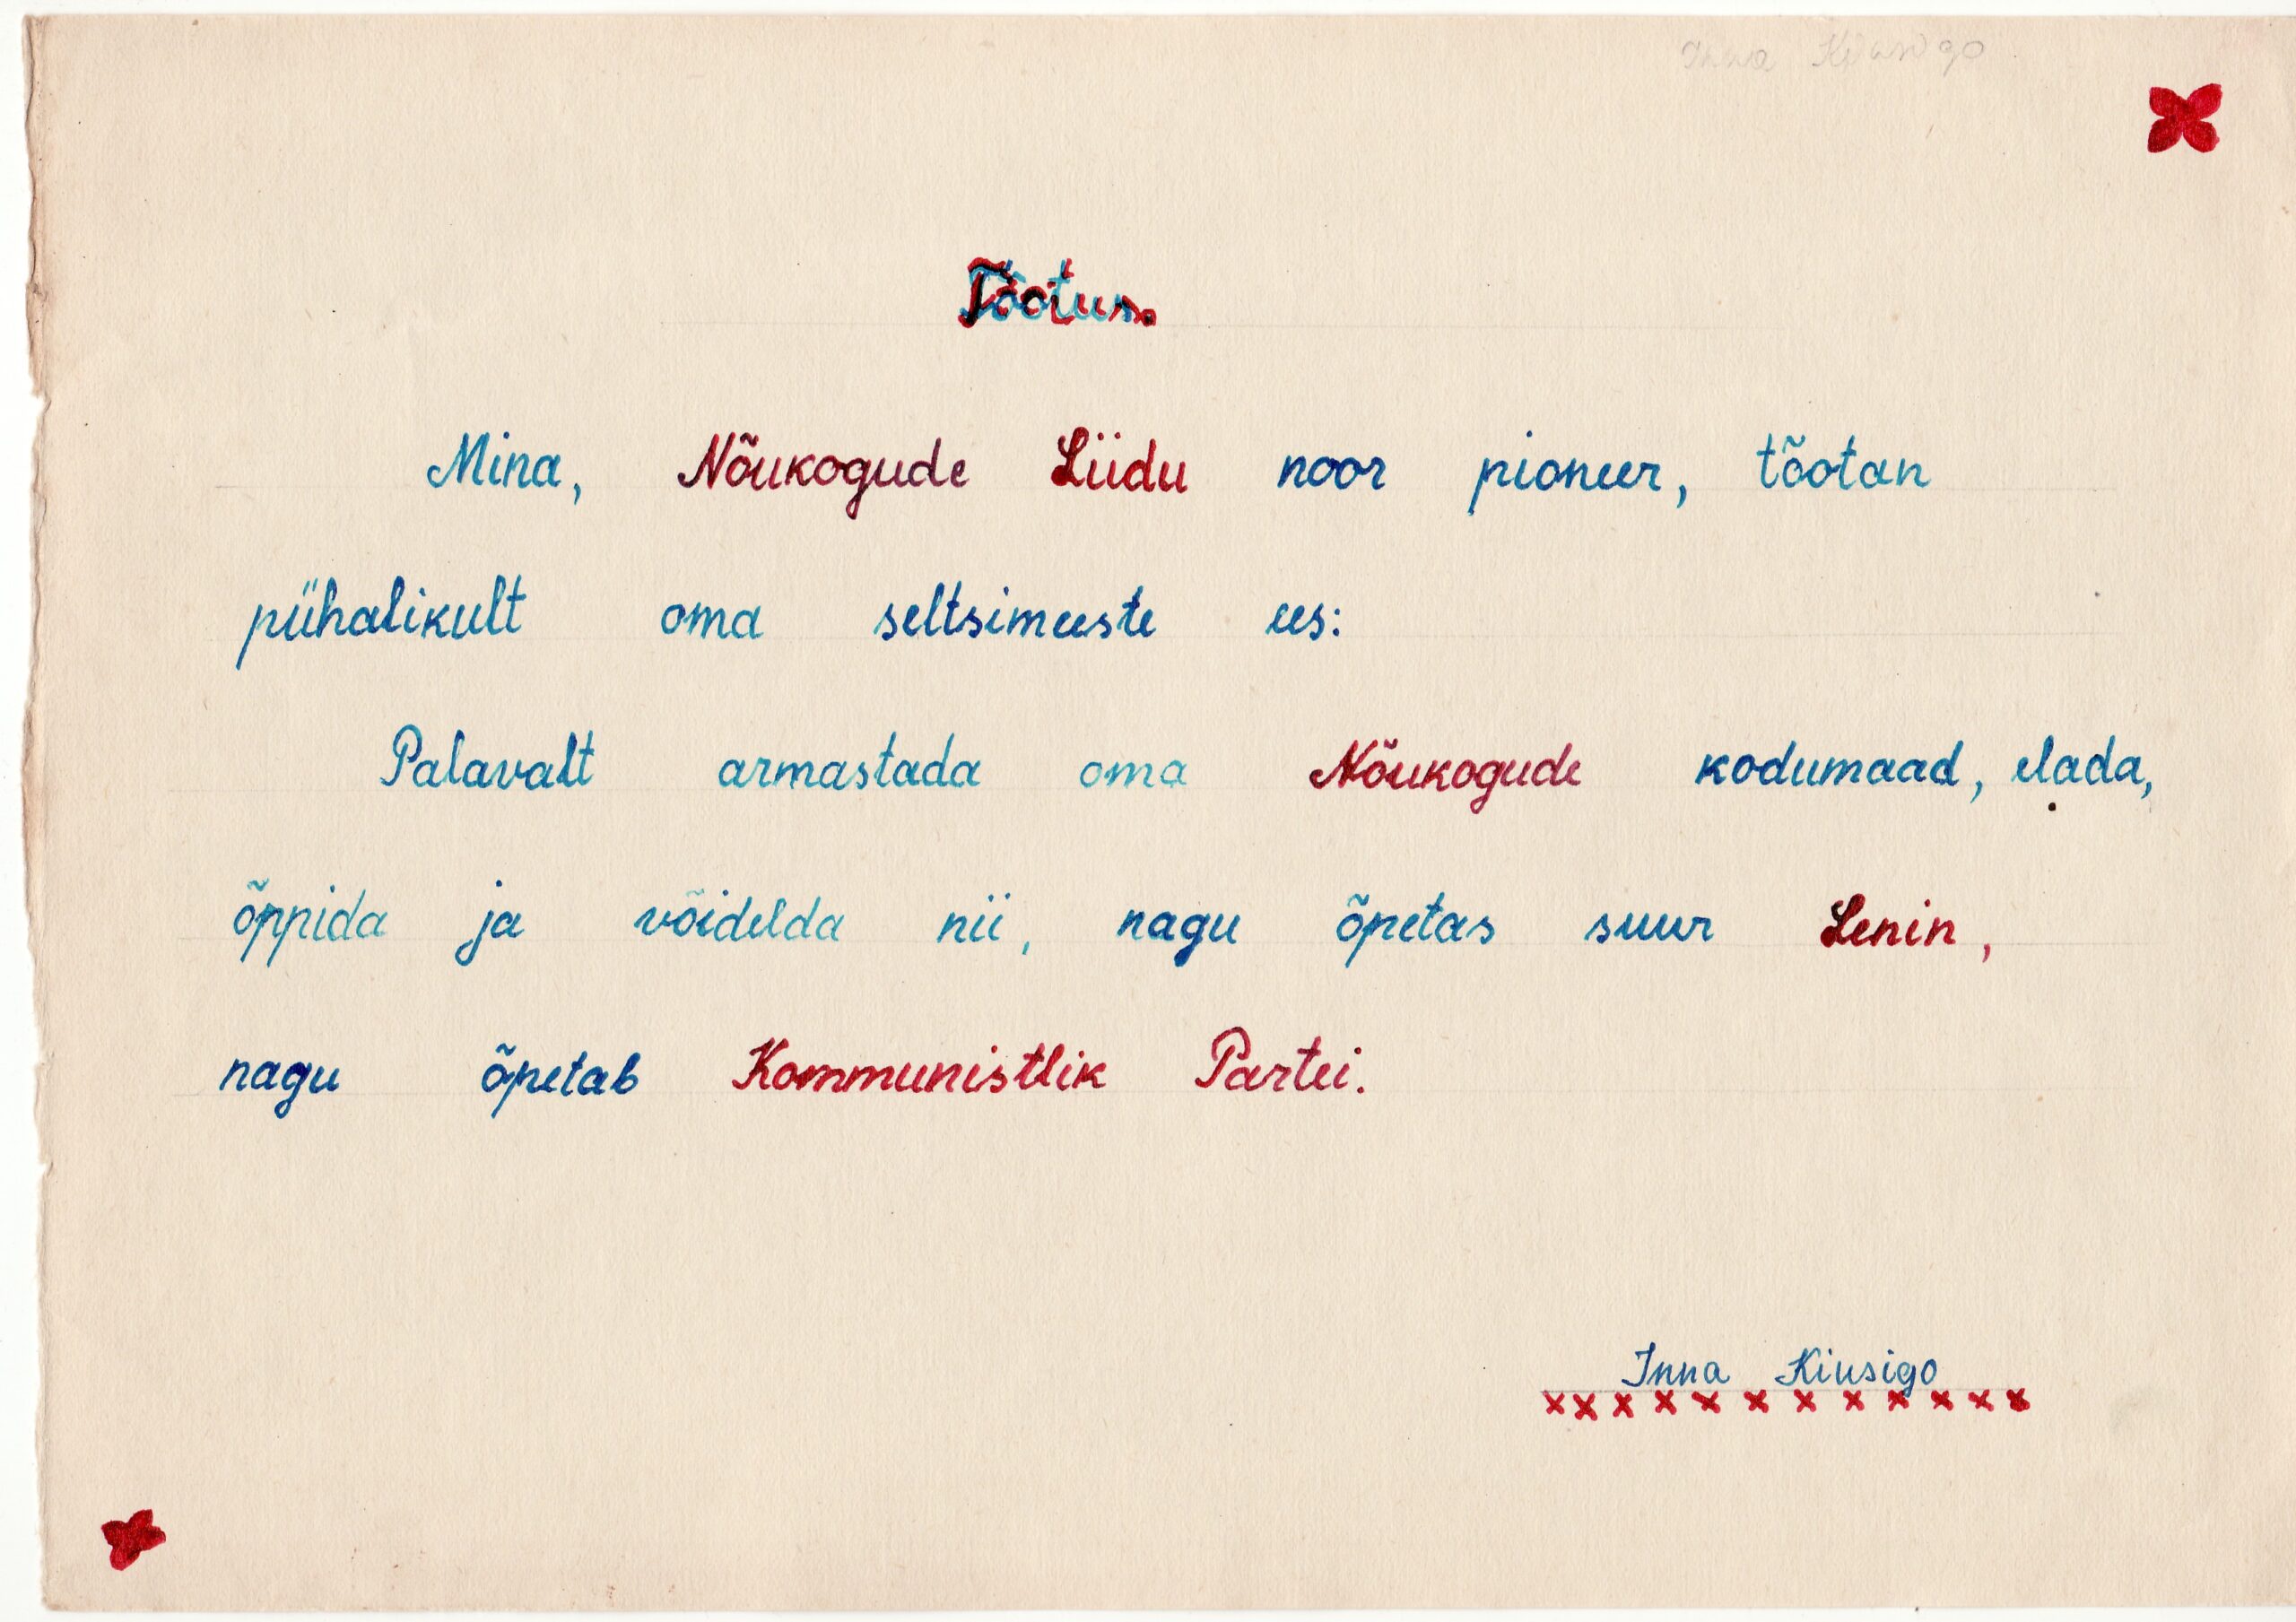 Inna Kiusigo
Tõotus.
Mina, Nõukogude Liidu noor pioneer, tõotan
pühalikult oma seltsimeeste ees:
Palavalt armastada oma Nõukogude kodumaad, elada,
õppida ja võidelda nii, nagu õpetas suur Lenin,
nagu õpetab Kommunistlik Partei.
Inna Kiusigo